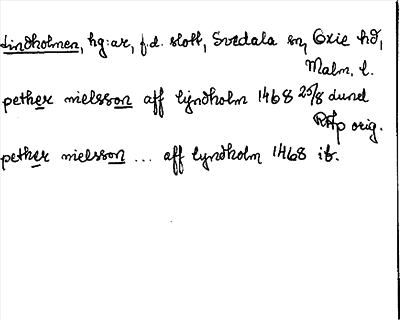 Lindholmen, hg:ar, f.d. slott, Svedala sn, Oxie hd,
Malm. l.
pether nielsson aff lijndholm 1468 25/8 dund
RAp orig.
pether nielsson ... aff lyndholm 1468 ib.